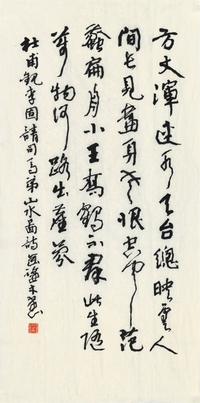 方丈渾連水天台總映雲人
間長見畫身老恨空聞范
蠡扁舟小王喬鶴不群此生隨
萬物何路出塵氛
杜甫觀李固請司馬弟山水圖詩